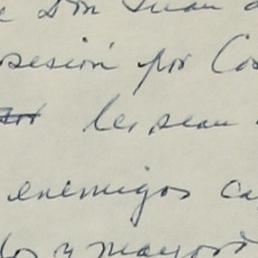 e Don Juan d
osesión por Cos
les sean
enemigos ca
los y mayor